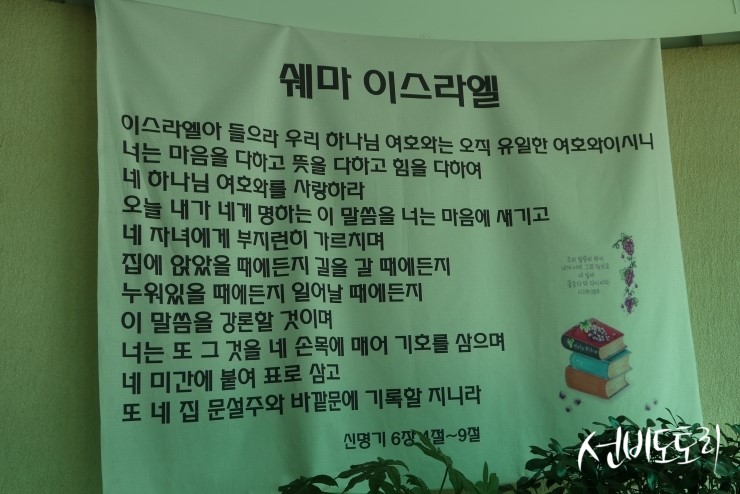 쉐마 이스라엘
이스라엘아 들으라 우리 하나님 여호와는 오직 유일한 여호와이시니
너는 마음을 다하고 뜻을 다하고 힘을 다하여
네 하나님 여호와를 사랑하라
오늘 내가 네게 명하는 이 말씀을 너는 마음에 새기고
네 자녀에게 부지런히 가르치며
집에 앉았을 때에든지 길을 갈 때에든지
누워있을 때에든지 일어날 때에든지
이 말씀을 강론할 것이며
너는 또 그 것을 네 손목에 매어 기호를 삼으며
네 미간에 붙여 표로 삼고
또 네 집 문설주와 바깥문에 기록할 지니라
신명기 6장 4절~9절
선비도도리